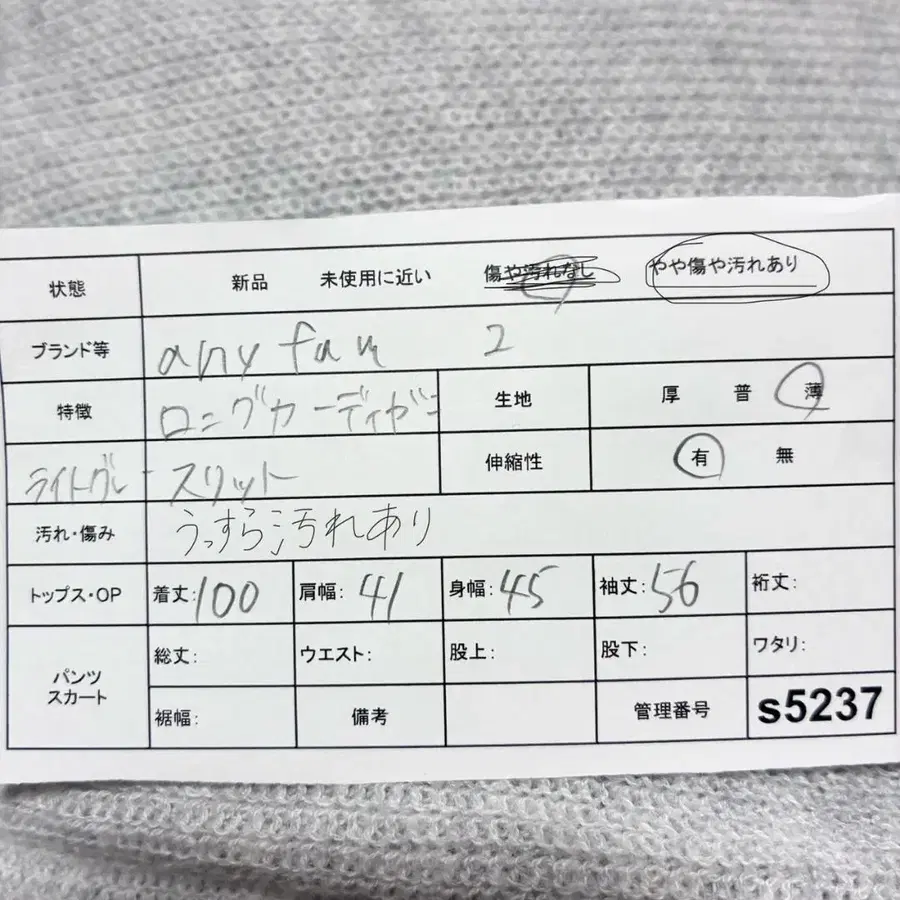 状態 新品 未使用に近い 傷や汚れなし やや傷や汚れあり
ブランド等 any fam 2
特徴 ロングカーディガン 生地 厚 普 薄
ライトグレー スリット 伸縮性 有 無
汚れ・傷み うっすら汚れあり
トップス・OP 着丈:100 肩幅:41 身幅:45 袖丈:56 裄丈:
パンツ スカート 総丈: ウエスト: 股上: 股下: ワタリ:
裾幅: 備考 管理番号 s5237